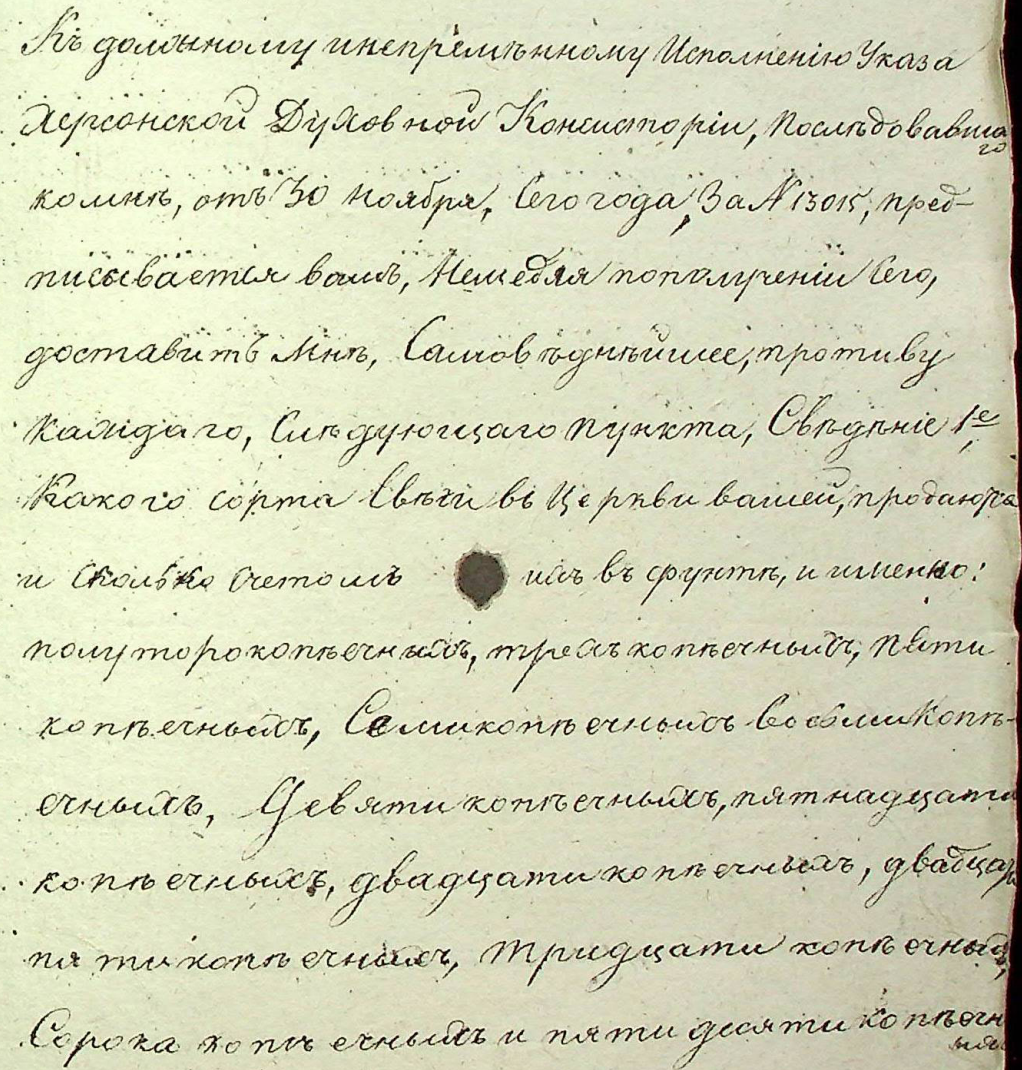 Къ должному инепремѣнному Исполненію Указа
Херсонской Духовной Консисторіи, послѣдовавшаго
комнѣ, отъ 30 ноября, Сего года, За № 13015, пред-
писывается вамъ, Немедля пополученіи Сего,
доставить Мнѣ, Самовѣрнѣйшее, противу
каждаго, Слѣдующаго пункта, Свѣдѣніе 1е,
Какого сорта Свѣчи въ Церкви вашей, продаются
и сколько счетомъ ихъ въ фунтѣ, и именно:
полуторокопѣечныхъ, трехъ копѣечныхъ, пяти
копѣечныхъ, Семикопѣечныхъ восьми Копѣ-
ечныхъ, Девяти копѣечныхъ, пятнадцати
копѣечныхъ, двадцати копѣечныхъ, двадцати
пяти копѣечныхъ, тридцати копѣечныхъ,
Сорока копѣечныхъ и пяти десяти копѣечныхъ